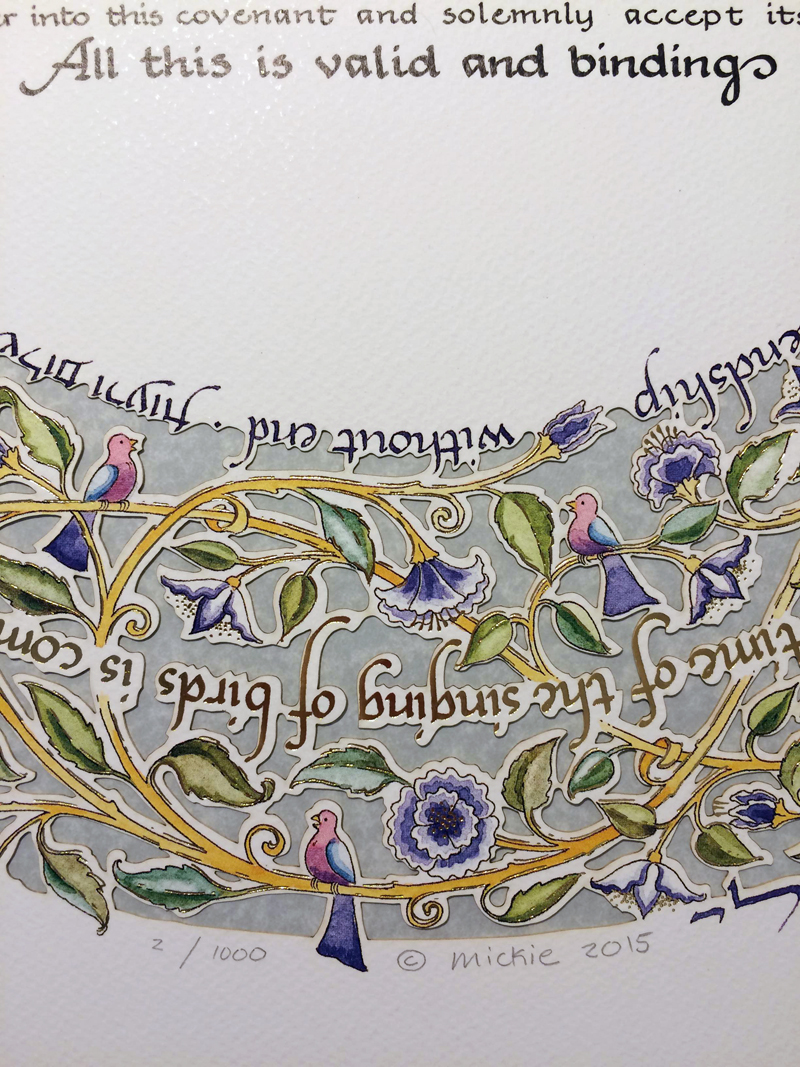 into this covenant and solemnly accept its
All this is valid and binding
endship
without end.
time of the singing of birds is com
2/1000 © mickie 2015